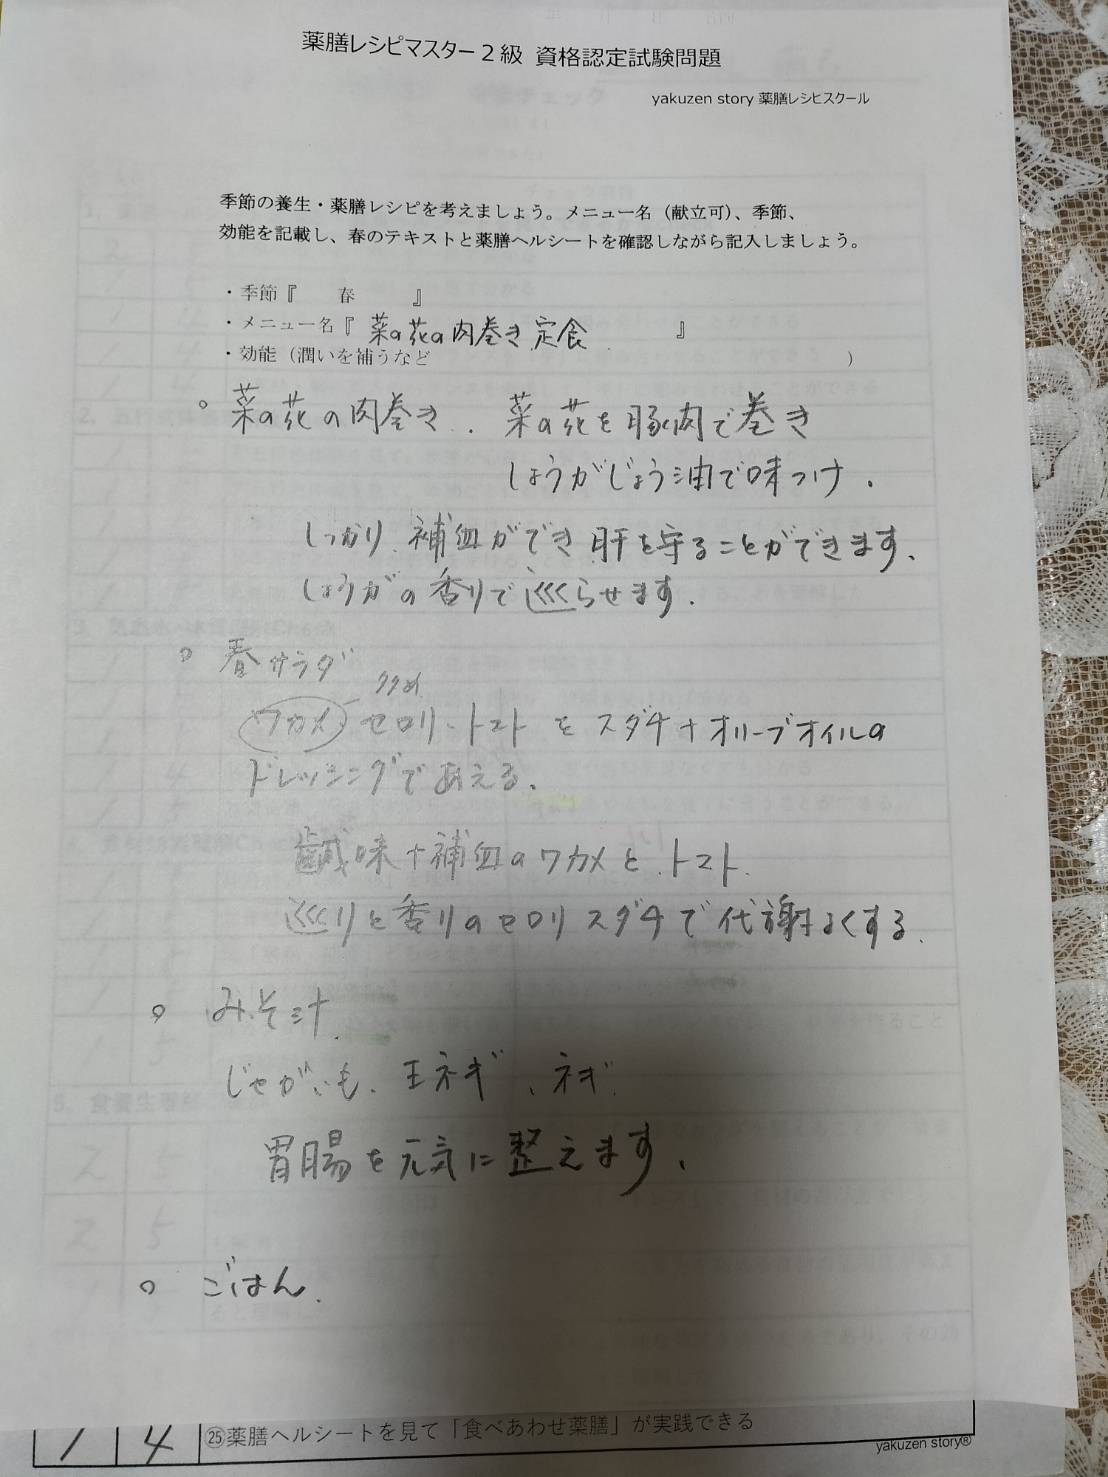 薬膳レシピマスター2級 資格認定試験問題
yakuzen story 薬膳レシピスクール
季節の養生・薬膳レシピを考えましょう。メニュー名（献立可）、季節、
効能を記載し、春のテキストと薬膳ヘルシートを確認しながら記入しましょう。
・季節『 春 』
・メニュー名『 菜の花の肉巻き定食 』
・効能（潤いを補うなど ）
○ 菜の花の肉巻き.. 菜の花を豚肉で巻き
しょうがじょう油で味つけ.
しっかり補血ができ肝を守ることができます.
しょうがの香りで巡らせます.
○ 春サラダ
多め
ワカメ セロリ・トマト を スダチ+オリーブオイルの
ドレッシングであえる.
鹹味+補血のワカメとトマト.
巡りと香りのセロリスダチで代謝よくする.
○ みそ汁
じゃがいも、玉ネギ、ネギ.
胃腸を元気に整えます.
○ ごはん.
1 4 ㉕薬膳ヘルシートを見て「食べあわせ薬膳」が実践できる
yakuzen story®